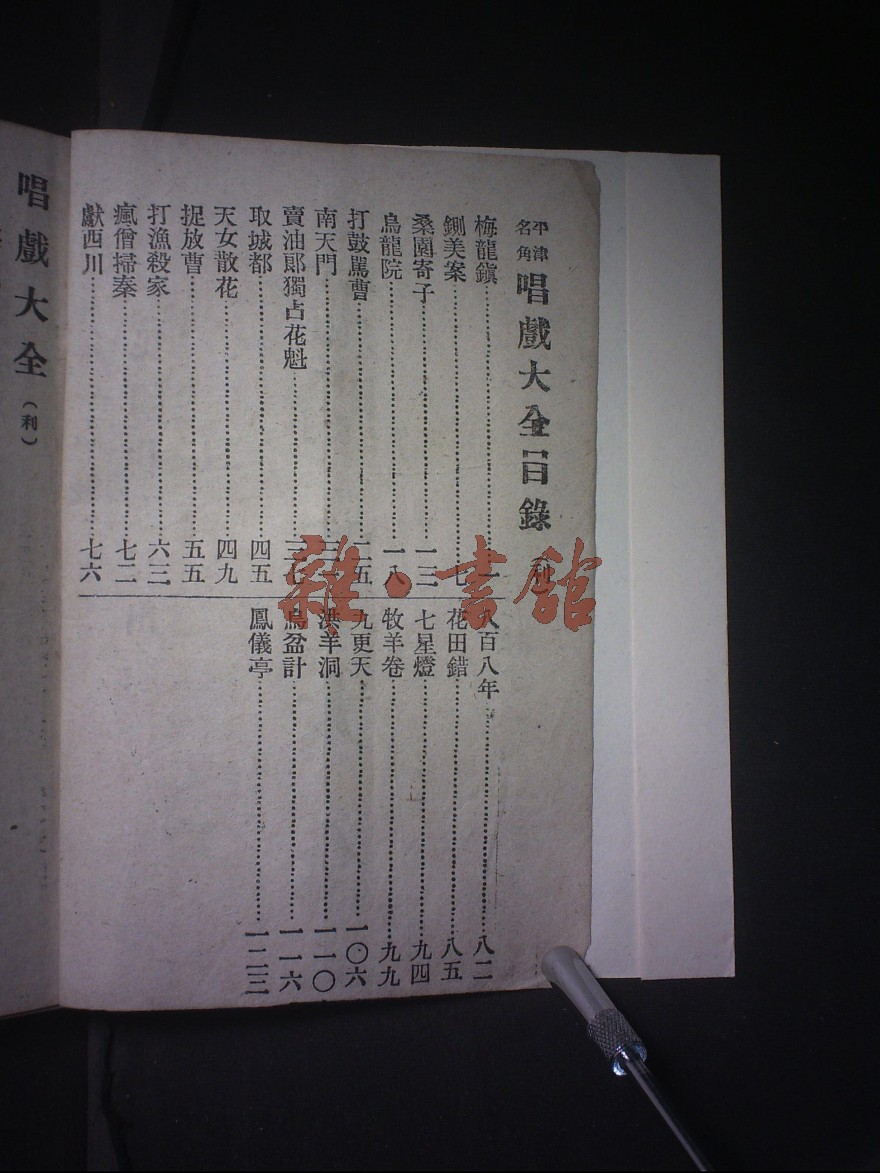 平津名角 唱戲大全目錄 (利)
梅龍鎮 一
鍘美案 七
桑園寄子 一三
烏龍院 一八
打鼓罵曹 二五
南天門
賣油郎獨占花魁 三七
取城都 四五
天女散花 四九
捉放曹 五五
打漁殺家 六三
瘋僧掃秦 七二
獻西川 七六
八百八年 八二
花田錯 八五
七星燈 九四
牧羊卷 九九
九更天 一〇六
洪羊洞 一一〇
烏盆計 一一六
鳳儀亭 一二三
唱戲大全(利)
雜·書館